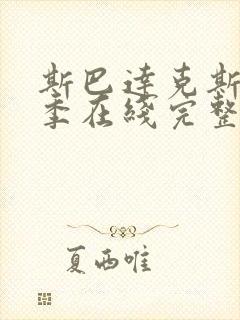 斯巴达克斯
季在线完整
夏西唯